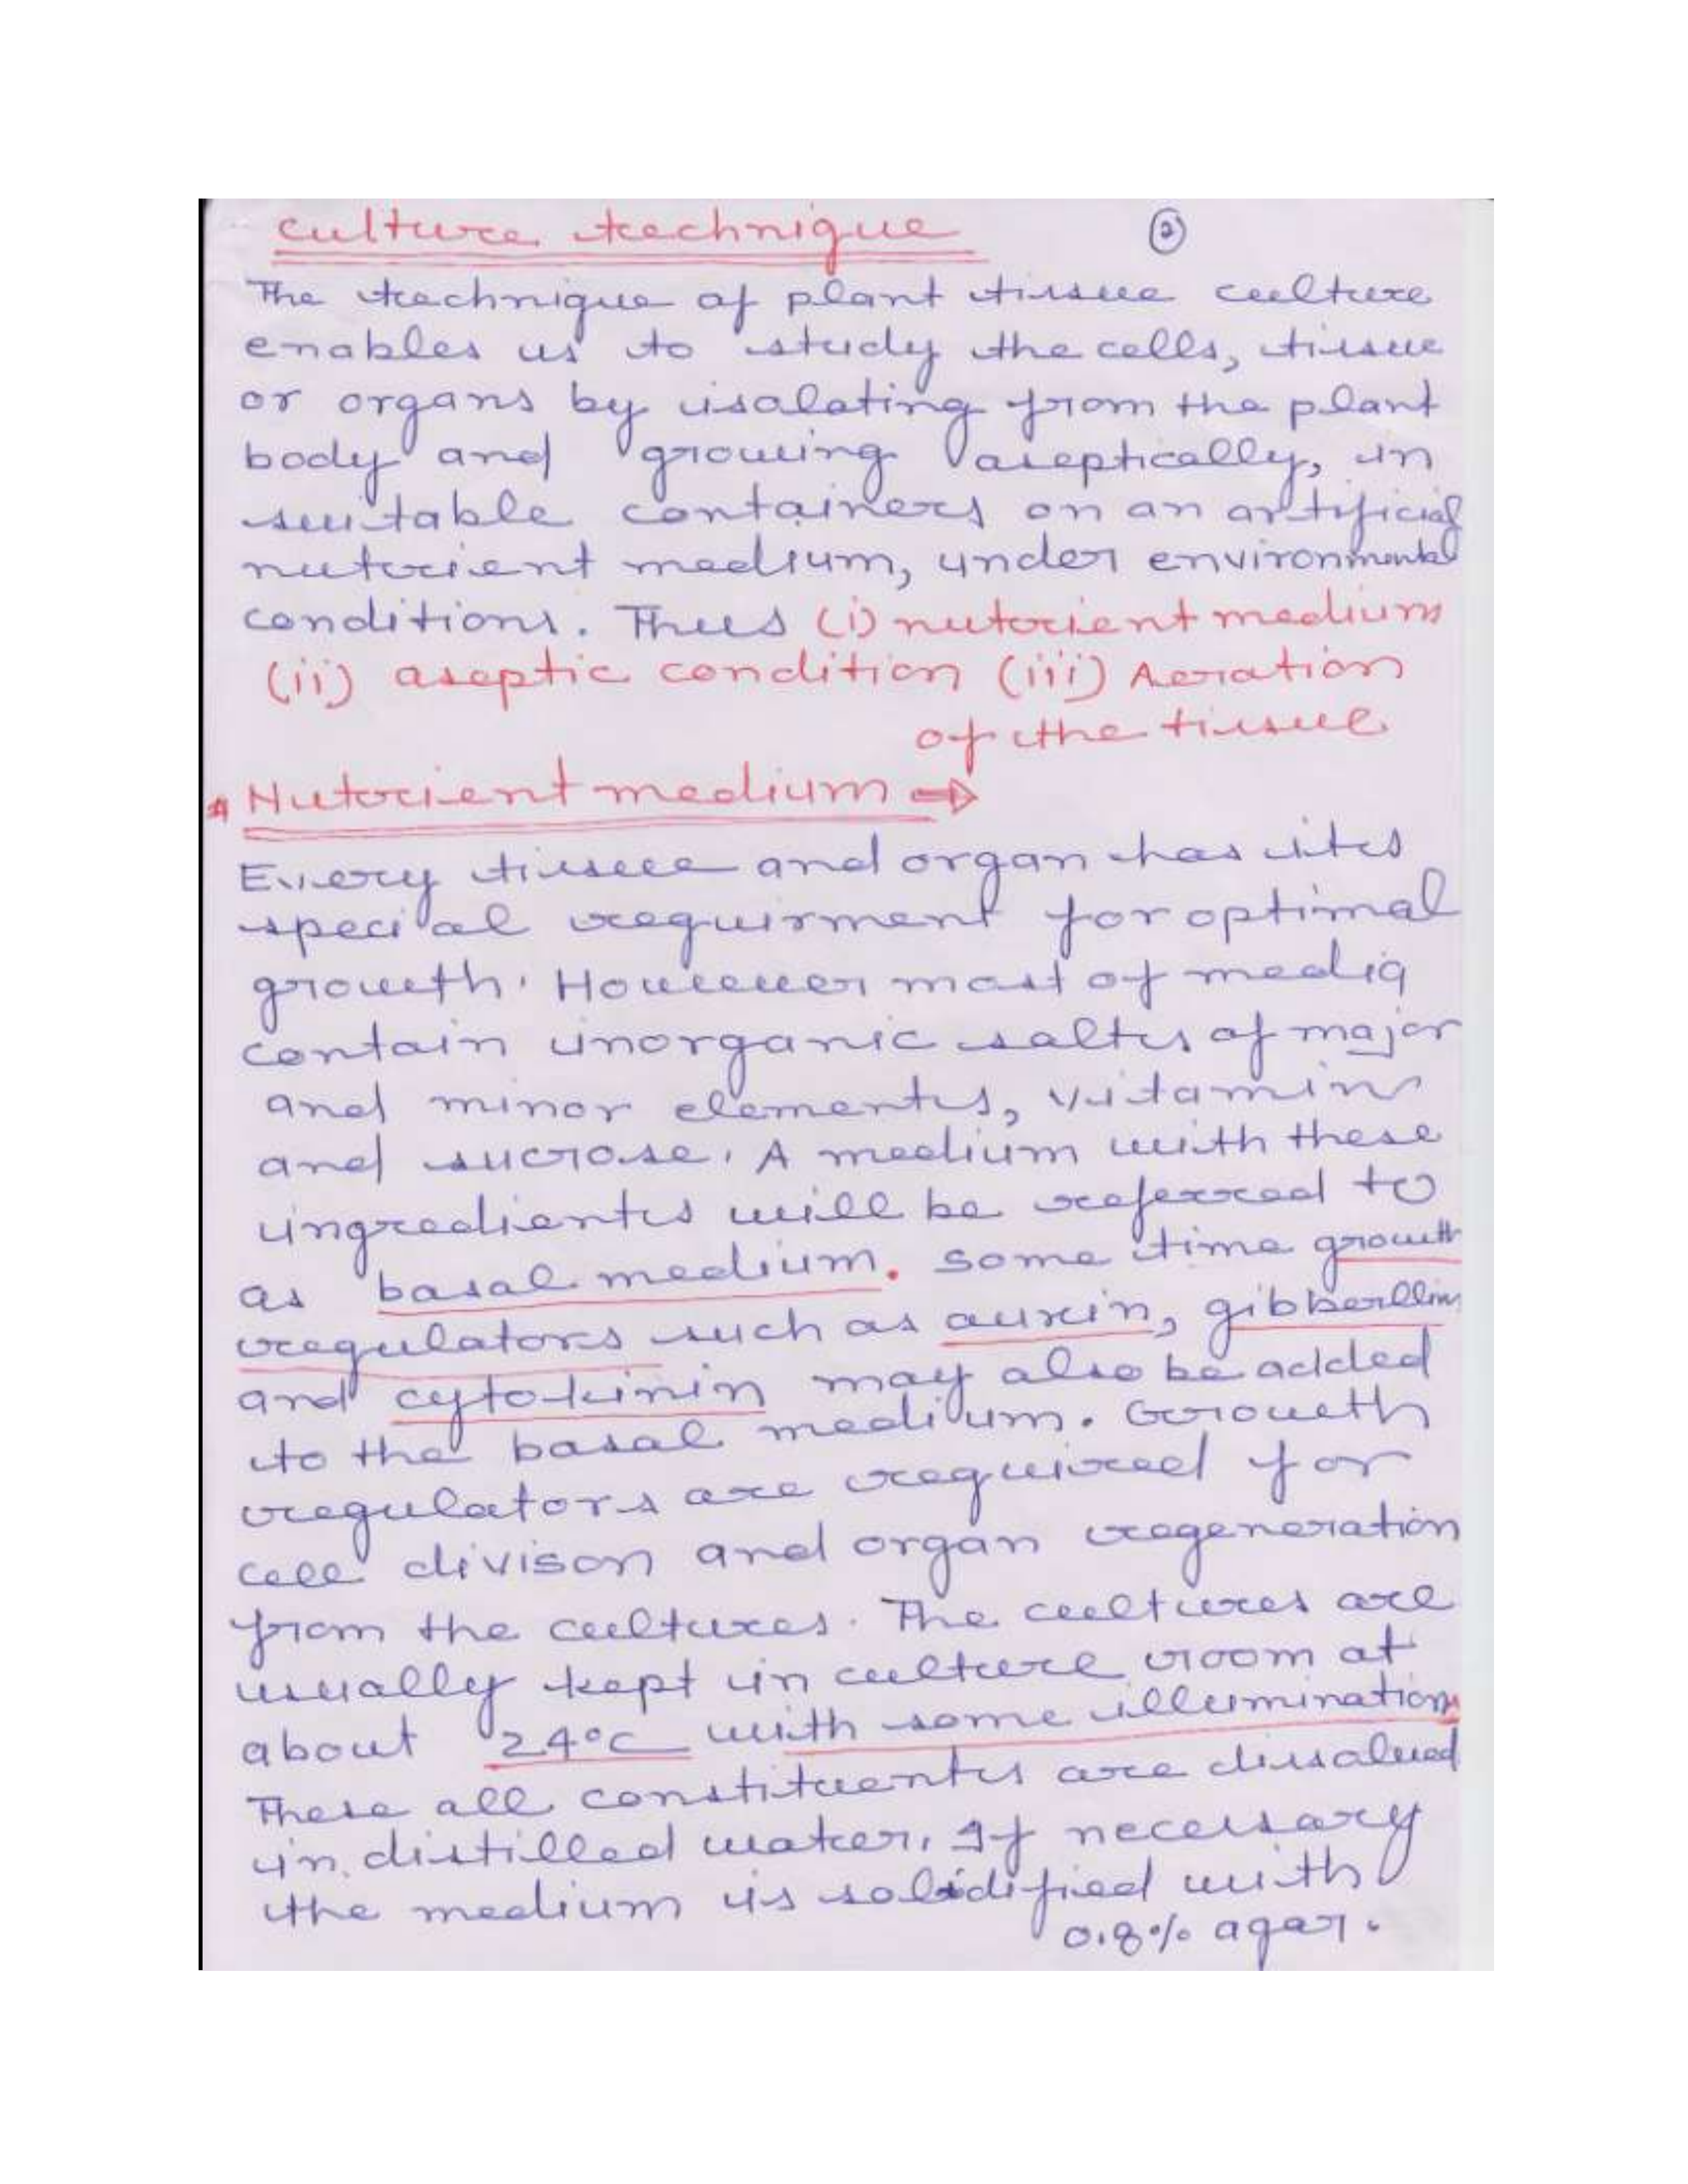 culture technique
2
The technique of plant tissue culture
enables us to study the cells, tissue
or organs by isolating from the plant
body and growing aseptically, in
suitable containers on an artificial
nutrient medium, under environmental
conditions. Thus (i) nutrient medium
(ii) aseptic condition (iii) Aeration
of the tissue
* Nutrient medium ⇒
Every tissue and organ has its
special requirment for optimal
growth. However most of media
contain inorganic salts of major
and minor elements, vitamins
and sucrose. A medium with these
ingredients will be referred to
as basal medium. Some time growth
regulators such as auxin, gibberllins
and cytokinin may also be added
to the basal medium. Growth
regulators are required for
cell divison and organ regeneration
from the cultures. The cultures are
usually kept in culture room at
about 24°C with some illumination
These all constituents are dissolved
in distilled water. If necessary
the medium is solidified with
0.8% agar.